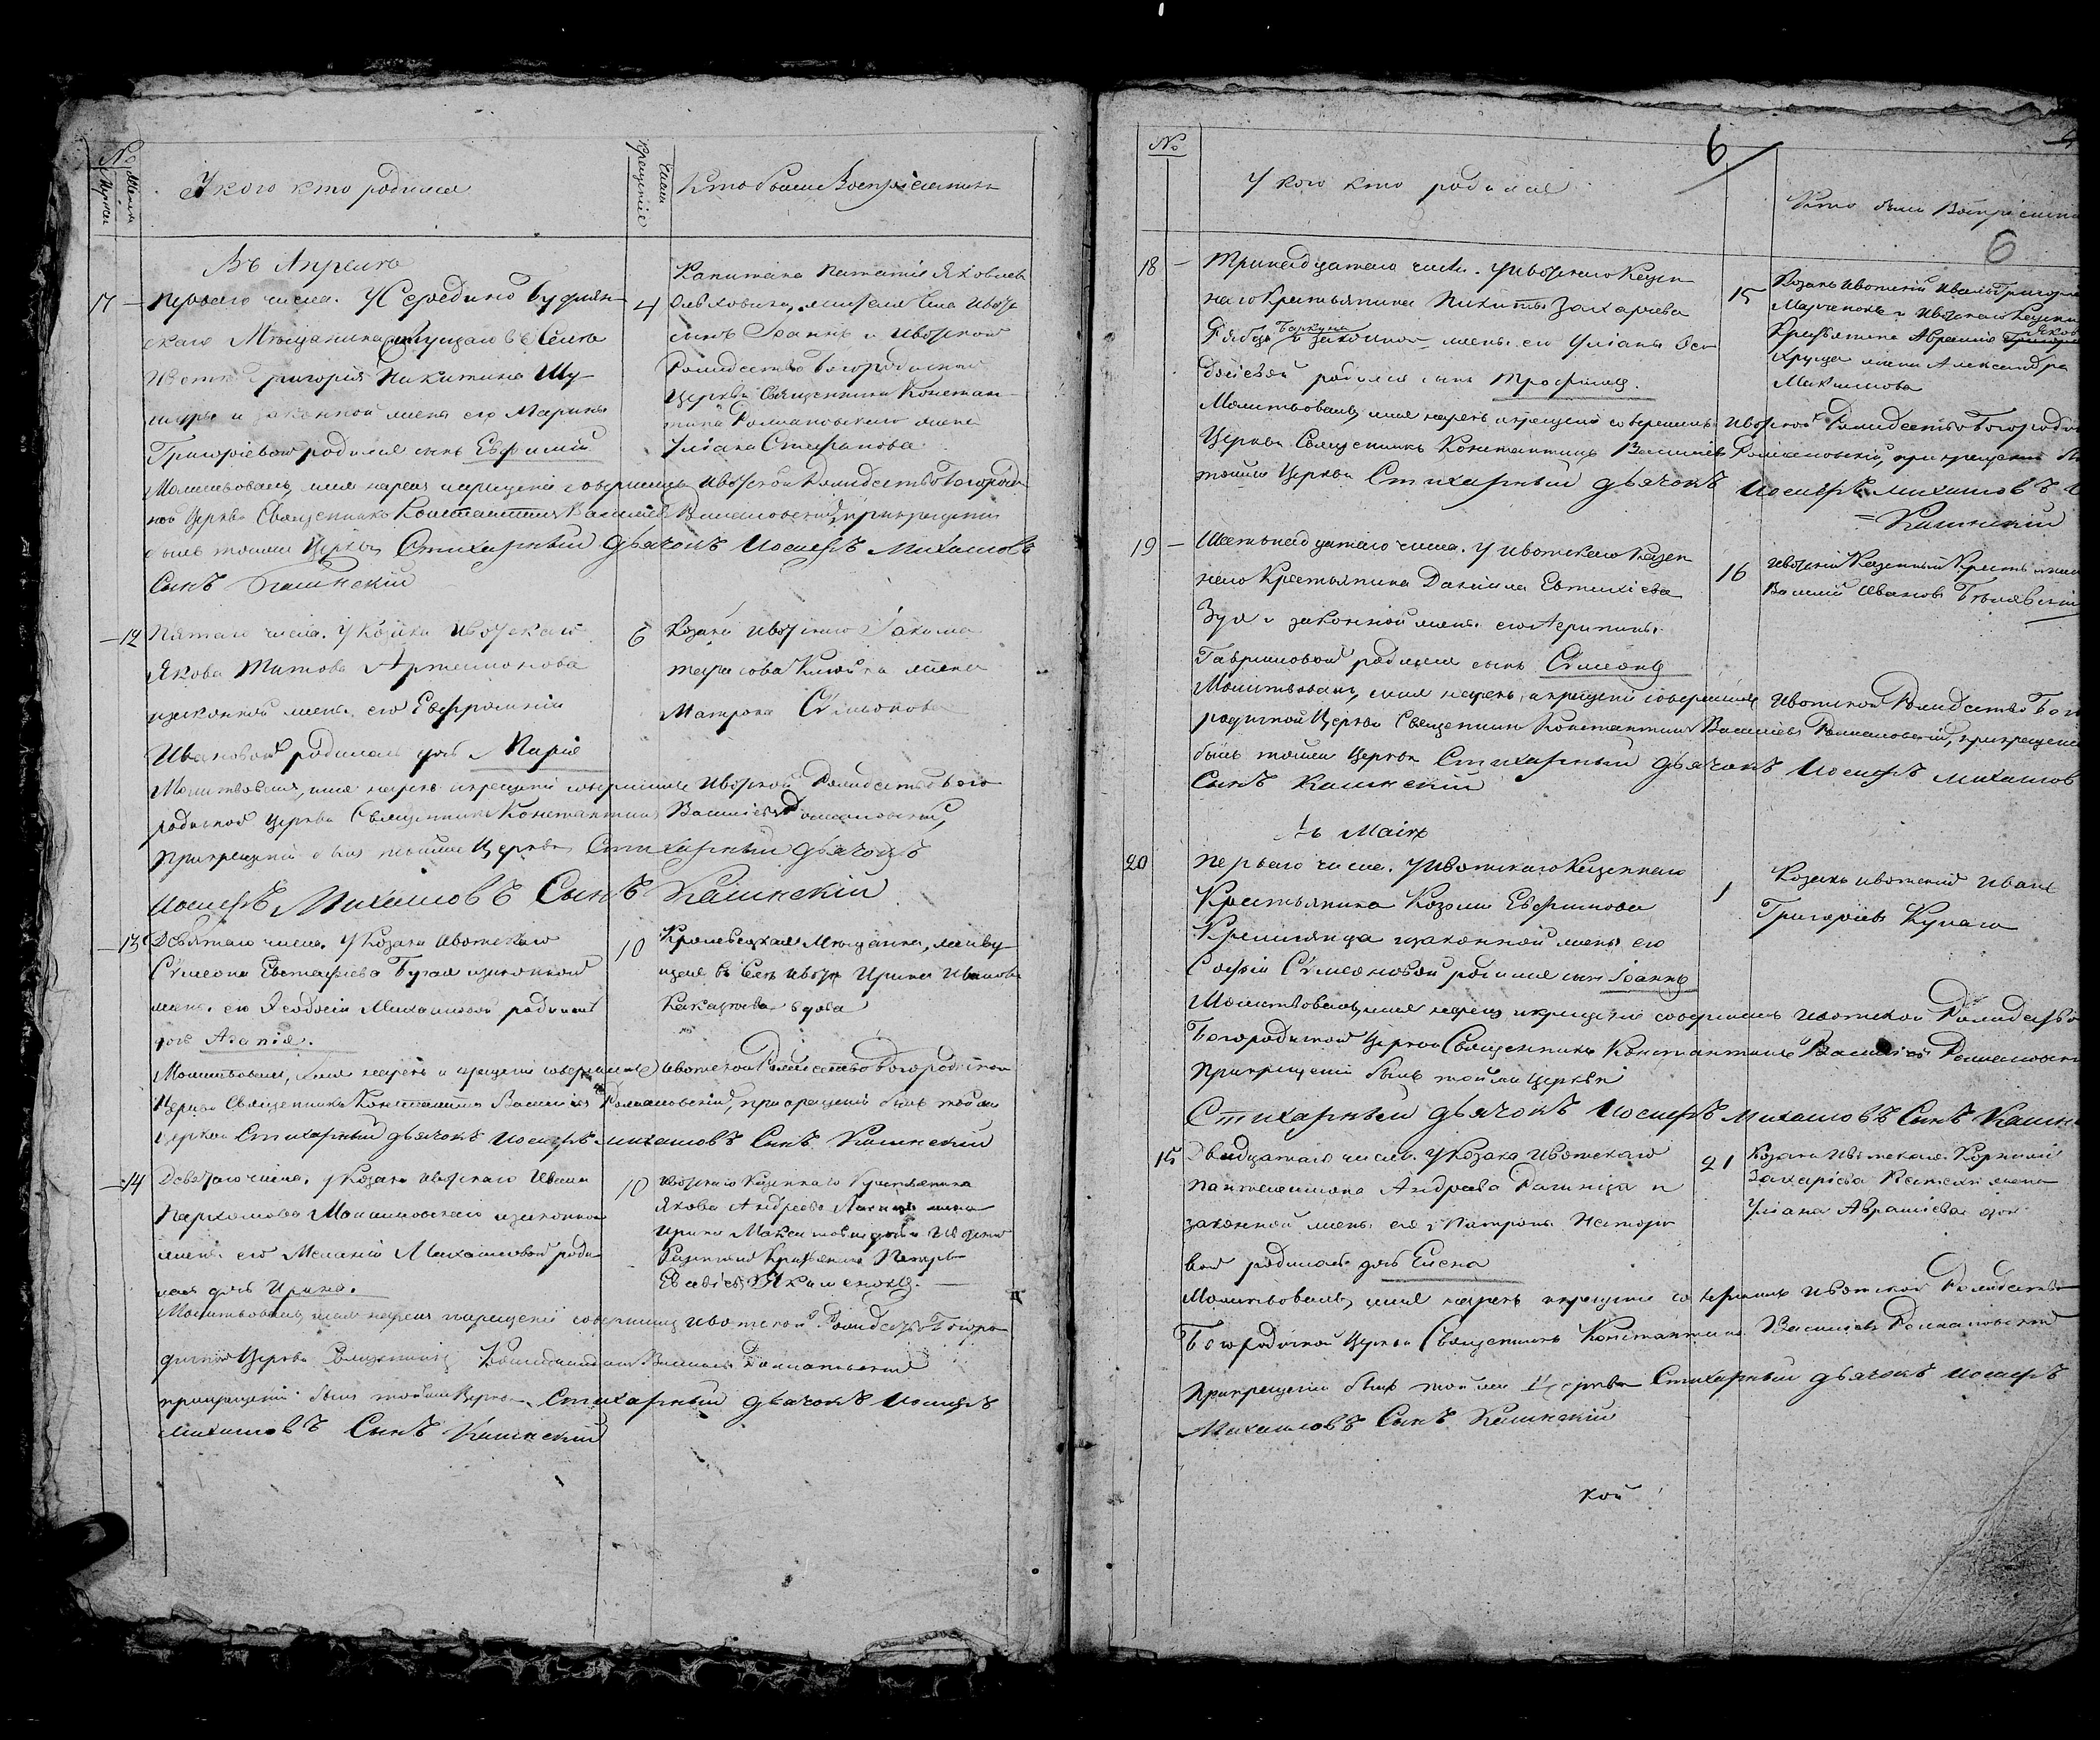 №
Мужск
Женск
У кого кто родился
Число крещенія
Кто были Воспріемники
Въ Апреле
17 — Перваго числа. У Середино Будзкаго
скаго Мещанина жівущаго въ селе
Ивоти Григорія Никитина
и законной жены его Марины
Григоріевой родился сынъ Евфимій
4
Капитана Игнатія Яковлева
сынъ Іоаннъ и Ивотской
Рождество Богородичной
Церкви Священника Констан-
тина Романовскаго жена
Уліана Стефанова
Молитвовалъ, имя нарекъ и крещеніе совершилъ Ивотской Рождество Богородич
ной Церкви Священникъ Константинъ Васильевъ Романовскій, при крещеніи
былъ тойже Церкви Стихарный дьячокъ Иосифъ Михайловъ
Сынъ Калинскій
— 12 Пятаго числа. У Козака Ивотскаго
Якова Титова Артемонова
изаконной жены его Евфросиніи
Ивановой родилась дочь Марія
6
Козака Ивотскаго Іакима
Тарасова жена
Матрона Сѵмеонова
Молитвовалъ, имя нарекъ и крещеніе совершилъ Ивотской Рождество Бого
родичной Церкви Священникъ Константинъ Васильевъ Романовскій,
при крещеніи былъ тойже Церкви Стихарный дьячокъ
Иосифъ Михайловъ Сынъ Калинскій
— 13 Девятаго числа. У Козака Ивотскаго
Сѵмеона Евстафіева Бугая изаконной
жены его Ѳеодосіи Михайловой родилась
дочь Агапія.
10
Кролевецкая Мещанка, живу
щая въ селе Ивоти Ирина Иванова
вдова
Молитвовалъ, имя нарекъ и крещеніе совершилъ Ивотской Рождество Богородичной
Церкви Священникъ Константинъ Васильевъ Романовскій, при крещеніи былъ тойже
Церкви Стихарный дьячокъ Иосифъ Михайловъ Сынъ Калинскій
— 14 Девятаго числа. У Козака Ивотскаго Ивана
Пархомова изаконной
жены его Меланіи Михайловой роди
лась дочь Ирина.
10
Ивотскаго Казеннаго Крестьянина
Якова Андреева жена
Ирина Максимова и Ивотской
Казенный Крестьянинъ Петръ
Евсевіевъ
Молитвовалъ, имя нарекъ и крещеніе совершилъ Ивотской Рождество Богоро
дичной Церкви Священникъ Константинъ Васильевъ Романовскій
при крещеніи былъ тойже Церкви Стихарный дьячокъ Иосифъ
Михайловъ Сынъ Калинскій
№
У кого кто родился
6
Кто были Воспріемник
6
18 — Тринадцатаго числа. У Ивотскаго Казен
наго Крестьянина Никиты Захаріева
Рябца Баркуна и законной жены его Уліаны Ѳео
досіевой родился сынъ Трофимъ.
15
Козакъ Ивотскій Иванъ Григорие
Марченокъ и Ивотскаго Казенна
Крестьянина Авраамія Яков
Хруща жена Александра
Максимова
Молитвовалъ, имя нарекъ и крещеніе совершилъ Ивотской Рождество Богороди
Церкви Священникъ Константинъ Васильевъ Романовскій, при крещеніи бы
тойже Церкви Стихарный дьячокъ Иосифъ Михайловъ
Калинскій
19 — Шестьнадцатаго числа. У Ивотскаго Казен
наго Крестьянина Даніила Евтихіева
Зуя и законной жены его Агрипины
Гавриловой родился сынъ Сѵмеонъ
16
Ивотскій Казенный Крестьянин
Василій Ивановъ Белявскій
Молитвовалъ, имя нарекъ и крещеніе совершилъ Ивотской Рождество Бого
родичной Церкви Священникъ Константинъ Васильевъ Романовскій, при крещеніи
былъ тойже Церкви Стихарный дьячокъ Иосифъ Михайлов
Сынъ Калинскій
Въ Маіи
20 Перваго числа. У Ивотскаго Казеннаго
Крестьянина Козьмы Евфимова
Кремянца изаконной жены его
Софіи Сѵмеоновой родился сынъ Іоаннъ
1
Козакъ Ивотскій Иванъ
Григоріевъ Купаго
Молитвовалъ, имя нарекъ и крещеніе совершилъ Ивотской Рождество
Богородичной Церкви Священникъ Константинъ Васильевъ Романовскі
При крещеніи былъ тойже Церкви
Стихарный дьячокъ Иосифъ Михайловъ Сынъ Калин
15 Двадцатаго числа. У Козака Ивотскаго
Пантелеимона Андреева и
законной жены его Матроны Нестеро
вой родилась дочь Елена
21
Козака Ивотскаго Корнилія
Захаріева жена
Уліана Авраміева
Молитвовалъ, имя нарекъ и крещеніе совершилъ Ивотской Рождество
Богородичной Церкви Священникъ Константинъ Васильевъ Романовскій
При крещеніи былъ тойже Церкви Стихарный дьячокъ Иосифъ
Михайловъ Сынъ Калинскій
кой